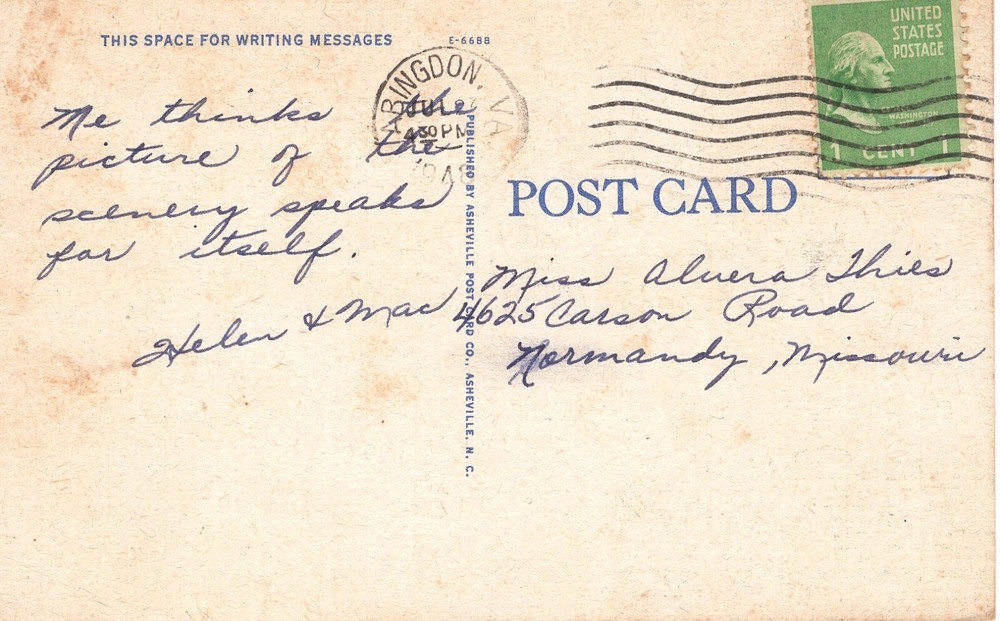 THIS SPACE FOR WRITING MESSAGES
E-6688
ABINGDON, VA
JUL
30 PM
1948
UNITED
STATES
POSTAGE
WASHINGTON
1 CENT 1
Me thinks the
picture of the
scenery speaks
for itself.
Helen & Mac
PUBLISHED BY ASHEVILLE POST CARD CO., ASHEVILLE, N. C.
POST CARD
Miss Alvera Thies
4625 Carson Road
Normandy, Missouri